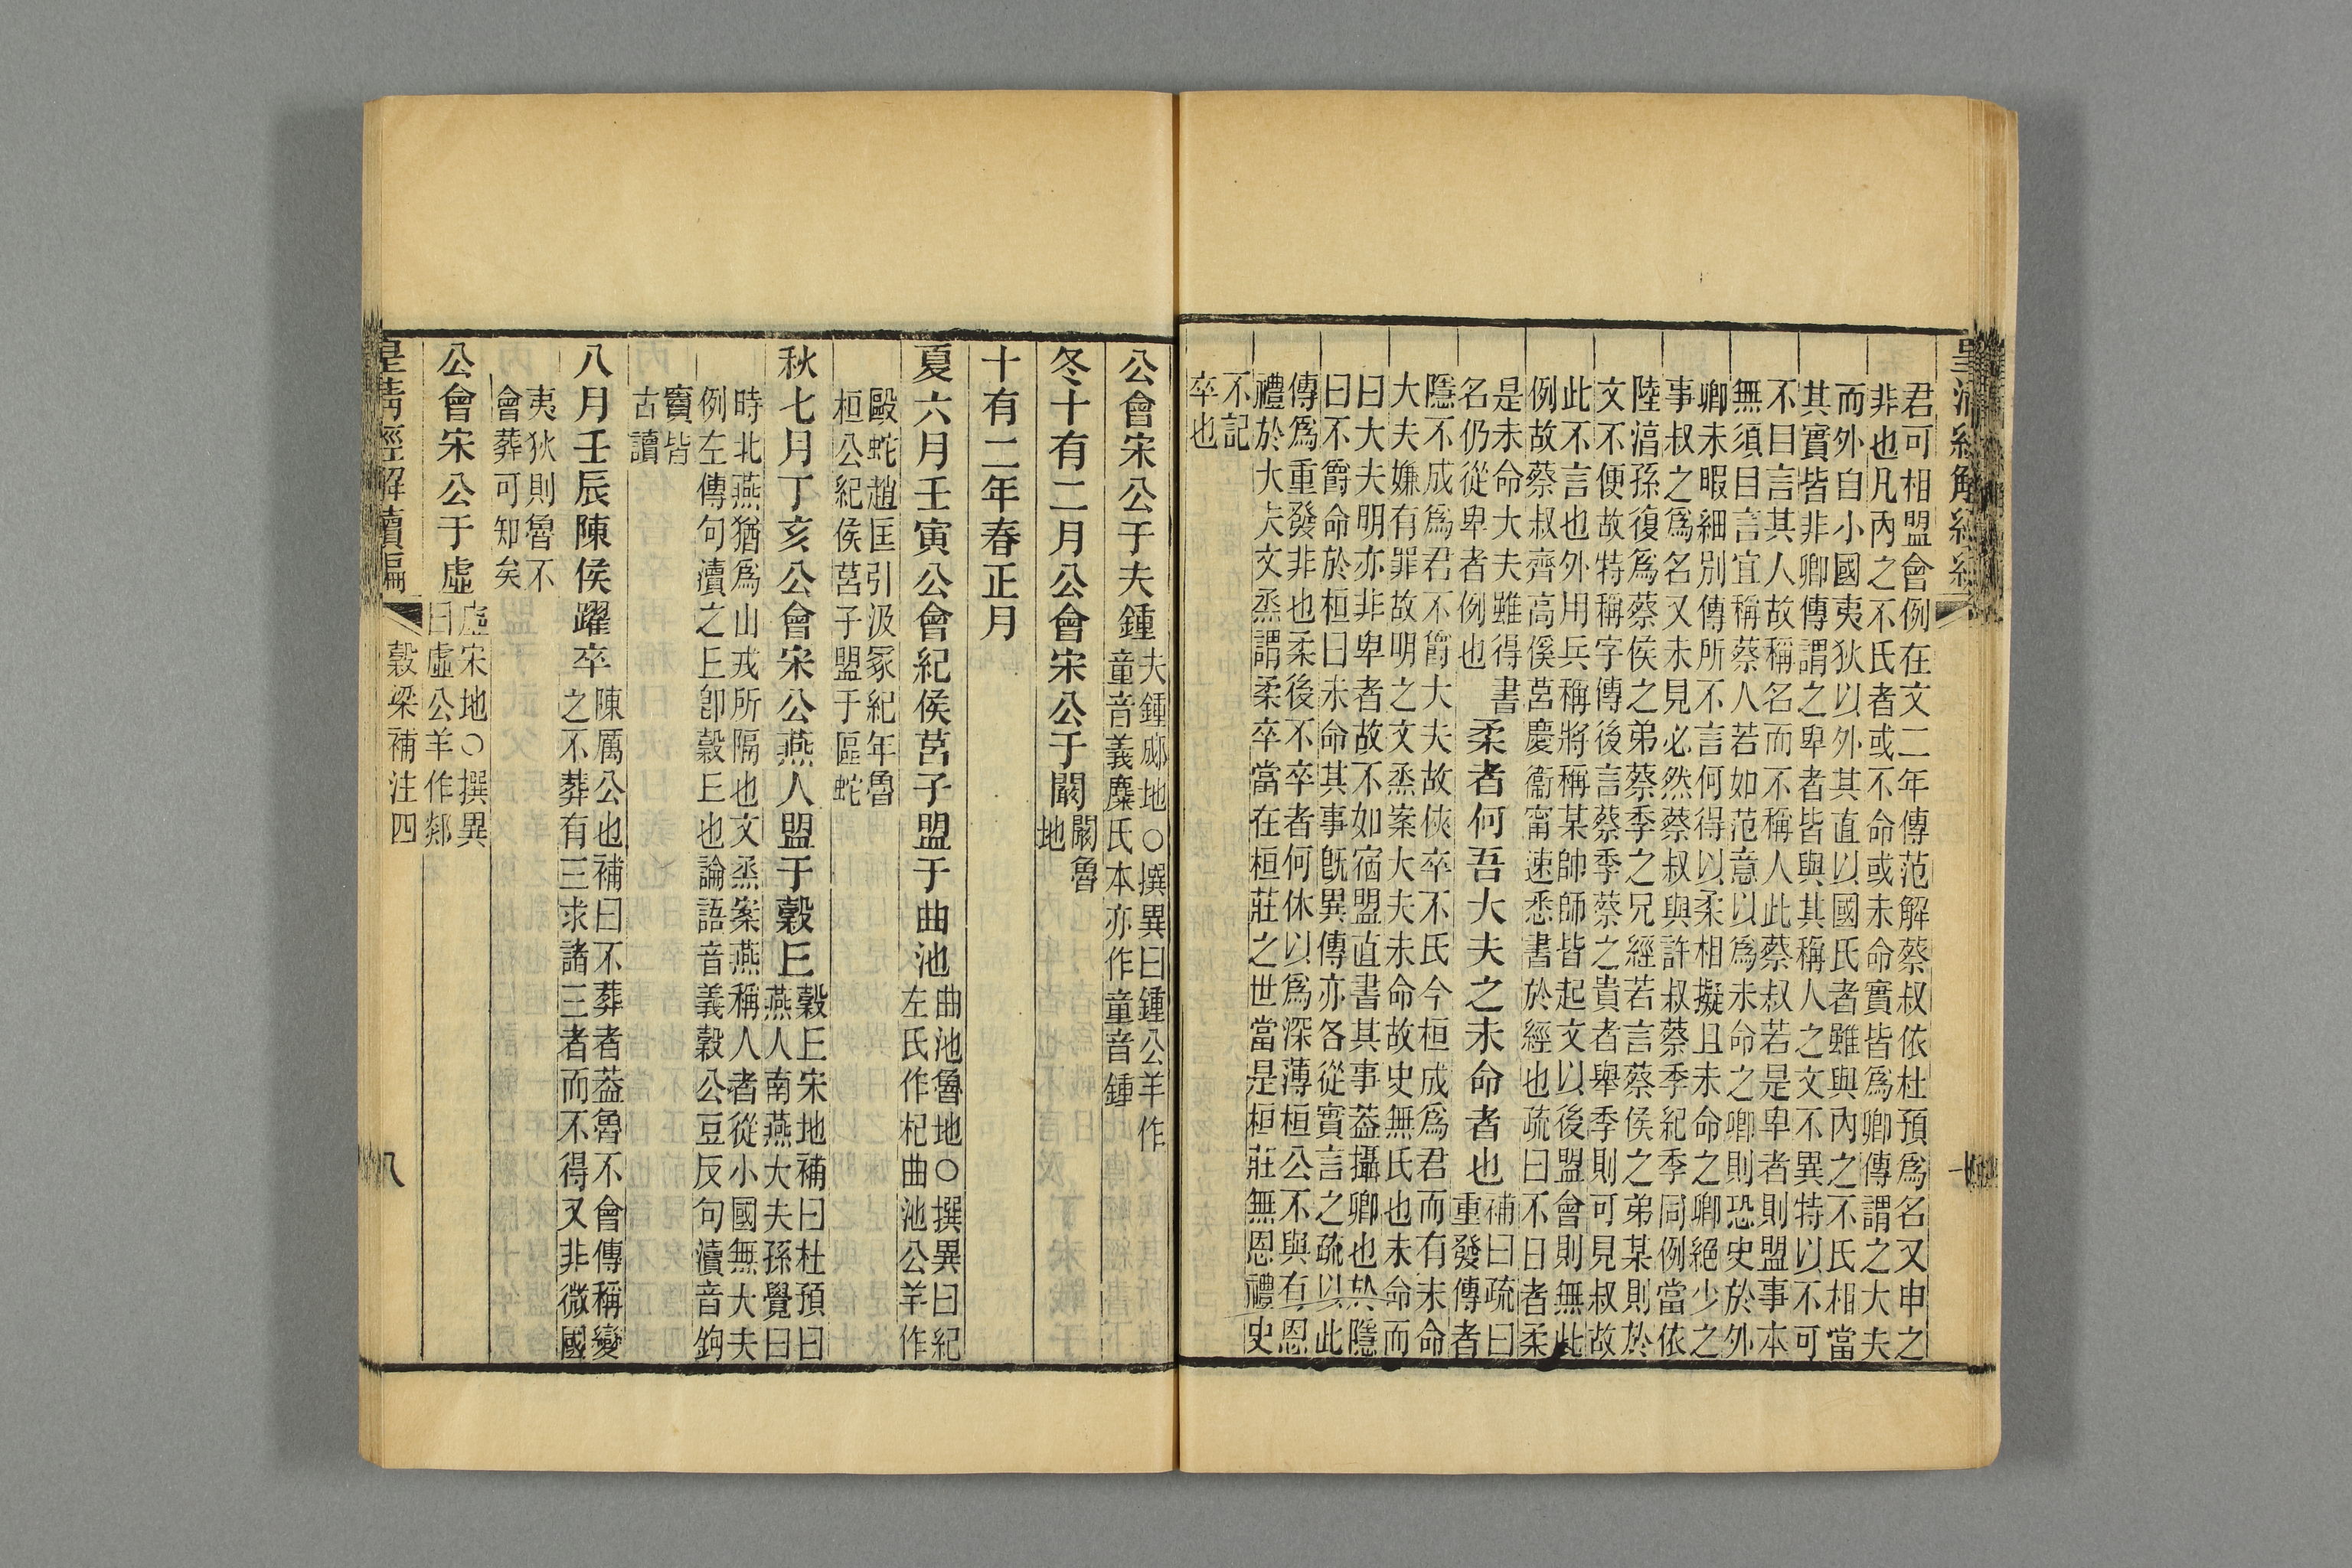 君可相盟會例在文二年傳范解蔡叔依杜預爲名又申之
非也凡內之不氏者或不命或未命實皆爲卿傳謂之大夫
而外自小國夷狄以外其直以國氏者雖與內之不氏相當
其實皆非卿傳謂之卑者皆與其稱人之文不異特以不可
不曰言其人故稱名而不稱人此蔡叔若是卑者則盟事本
無須目言宜稱蔡人若如范意以爲未命之卿則恐史於外
卿未暇細別傳所不言何得以柔相擬且未命之卿絕少之
事叔之爲名又未見必然蔡叔與許叔蔡季紀季同例當依
陸淳孫復爲蔡侯之弟蔡季之兄經若言蔡侯之弟某則於
文不便故特稱字傳後言蔡季蔡之貴者舉季則可見叔故
此不言也外用兵稱將稱某帥師皆起文以後盟會則無此
例故蔡叔齊高傒莒慶衞甯速悉書於經也疏曰不日者柔
是未命大夫雖得書
名仍從卑者例也
柔者何吾大夫之未命者也
補曰疏曰
重發傳者
隱不成爲君不爵大夫故俠卒不氏今桓成爲君而有未命
大夫嫌有罪故明之文烝案大夫未命故史無氏也未命而
曰大夫明亦非卑者故不如宿盟直書其事葢攝卿也於隱
曰不爵命於桓曰未命其事旣異傳亦各從實言之疏以此
傳爲重發非也柔後不卒者何休以爲深薄桓公不與有恩
禮於大夫文烝謂柔卒當在桓莊之世當是桓莊無恩禮史
不記
卒也
公會宋公于夫鍾
夫鍾郕地○撰異曰鍾公羊作
童音義麋氏本亦作童音鍾
冬十有二月公會宋公于闞
闞魯
地
十有二年春正月
夏六月壬寅公會紀侯莒子盟于曲池
曲池魯地○撰異曰紀
左氏作杞曲池公羊作
毆蛇趙匡引汲冢紀年魯
桓公紀侯莒子盟于區蛇
秋七月丁亥公會宋公燕人盟于穀丘
穀丘宋地補曰杜預曰
燕人南燕大夫孫覺曰
時北燕猶爲山戎所隔也文烝案燕稱人者從小國無大夫
例左傳句瀆之丘卽穀丘也論語音義穀公豆反句瀆音鉤
竇皆
古讀
八月壬辰陳侯躍卒
陳厲公也補曰不葬者葢魯不會傳稱變
之不葬有三求諸三者而不得又非微國
夷狄則魯不
會葬可知矣
公會宋公于虛
虛宋地○撰異
曰虛公羊作郯
皇淸經解續編
穀梁補注四
八